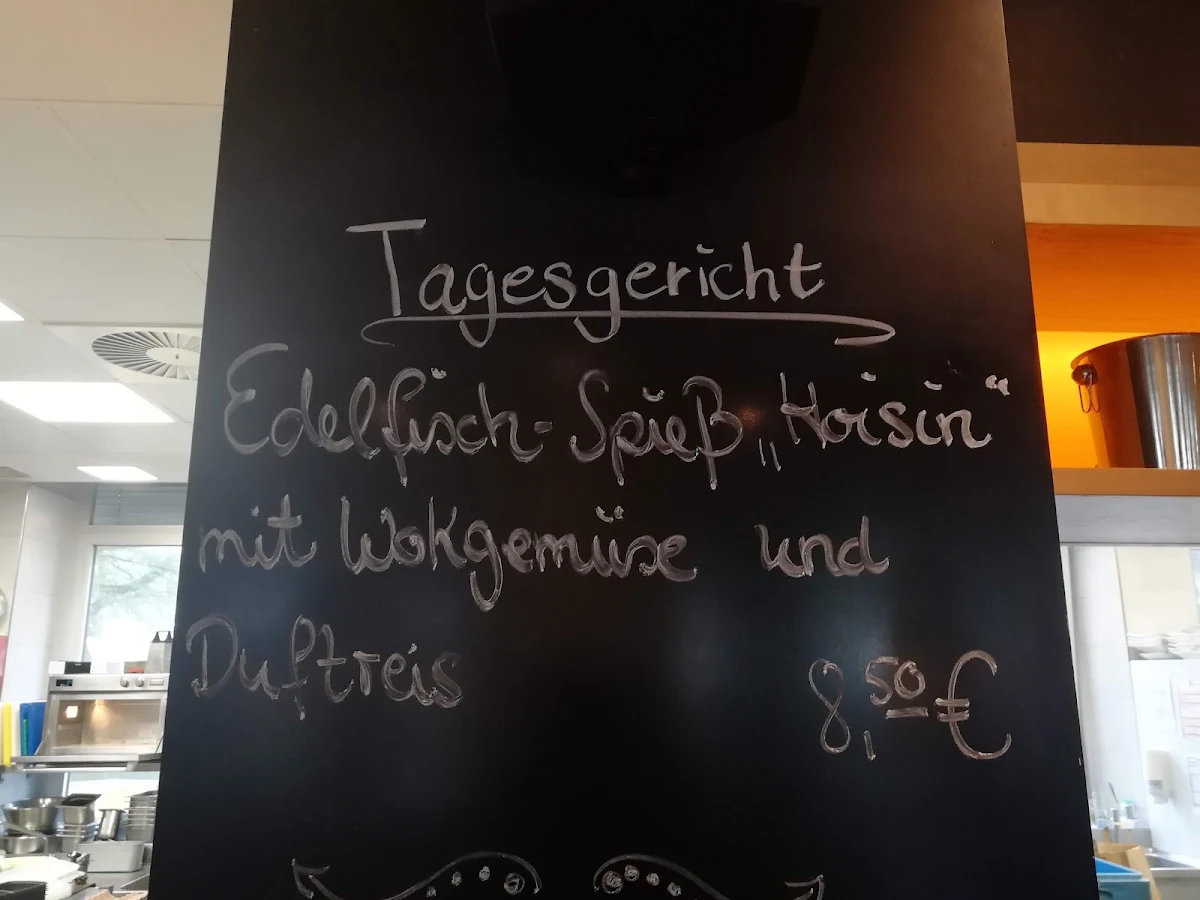 Tagesgericht
Edelfisch-Spieß „Hoisin“
mit Wokgemüse und
Duftreis 8,50 €